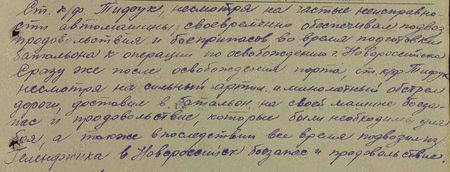 Ст. к/ф Пидчук, несмотря на частые неисправно
сти автомашины, своевременно обеспечивал подвоз
продовольствия и боеприпасов во время подготовки
батальона к операции по освобождению г. Новороссийска
Сразу же после освобождения порта, ст. к/ф Пидчук
несмотря на сильный артил. и минометный обстрел
дороги, доставил в батальон, на своей машине боеза-
пас и продовольствие, которые были необходимы для
боя, а также впоследствии все время подвозил из
Геленджика в Новороссийск боезапас и продовольствие.